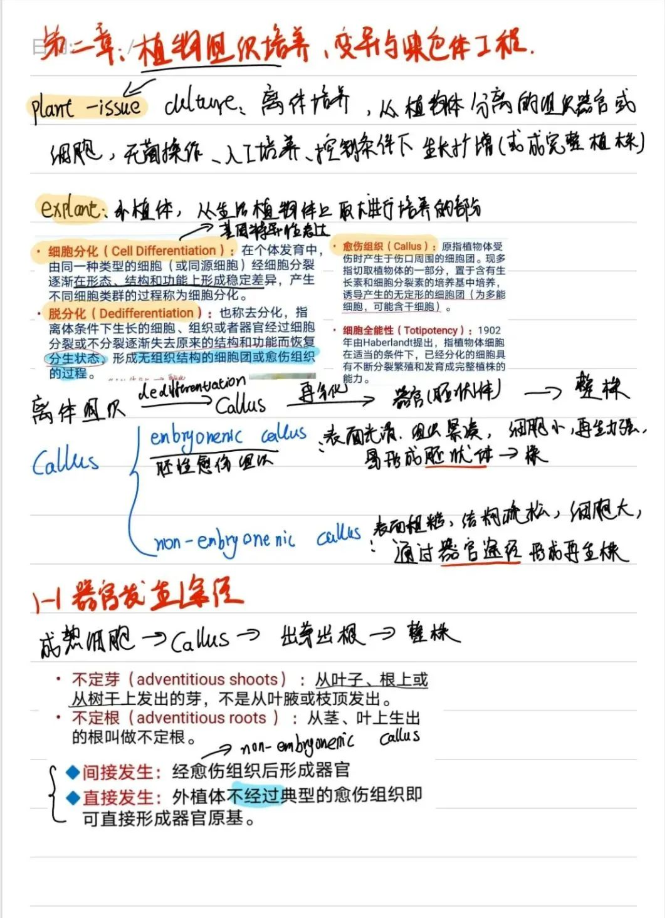 第二章:植物组织培养、变异与染色体工程.
plant -issue culture:离体培养,从植物体分离的组织器官或
细胞,无菌操作、人工培养、控制条件下生长扩增(或成完整植株)
explant:外植体,从生活植物体上取下进行培养的部分
→基因特异性表达
• 细胞分化(Cell Differentiation):在个体发育中,
由同一种类型的细胞(或同源细胞)经细胞分裂
逐渐在形态、结构和功能上形成稳定差异,产生
不同细胞类群的过程称为细胞分化。
• 脱分化(Dedifferentiation):也称去分化,指
离体条件下生长的细胞、组织或者器官经过细胞
分裂或不分裂逐渐失去原来的结构和功能而恢复
分生状态,形成无组织结构的细胞团或愈伤组织
的过程。
• 愈伤组织(Callus):原指植物体受
伤时产生于伤口周围的细胞团。现多
指切取植物体的一部分,置于含有生
长素和细胞分裂素的培养基中培养,
诱导产生的无定形的细胞团(为多能
细胞,可能含干细胞)。
• 细胞全能性(Totipotency):1902
年由Haberlandt提出,指植物体细胞
在适当的条件下,已经分化的细胞具
有不断分裂繁殖和发育成完整植株的
能力。
离体组织 dedifferentiation→ Callus 再分化→ 器官(胚状体) → 整株
Callus
embryonenic callus:表面光滑.组织紧凑,细胞小,再生力强,
胚性愈伤组织 易形成胚状体→株
non-embryonenic callus:表面粗糙,结构疏松,细胞大,
通过器官途径形成再生株
1-1 器官发生途径
成熟细胞→Callus→ 出芽出根→整株
• 不定芽(adventitious shoots):从叶子、根上或
从树干上发出的芽,不是从叶腋或枝顶发出。
• 不定根(adventitious roots ):从茎、叶上生出
的根叫做不定根。
→non-embryonenic callus
◆间接发生:经愈伤组织后形成器官
◆直接发生:外植体不经过典型的愈伤组织即
可直接形成器官原基。